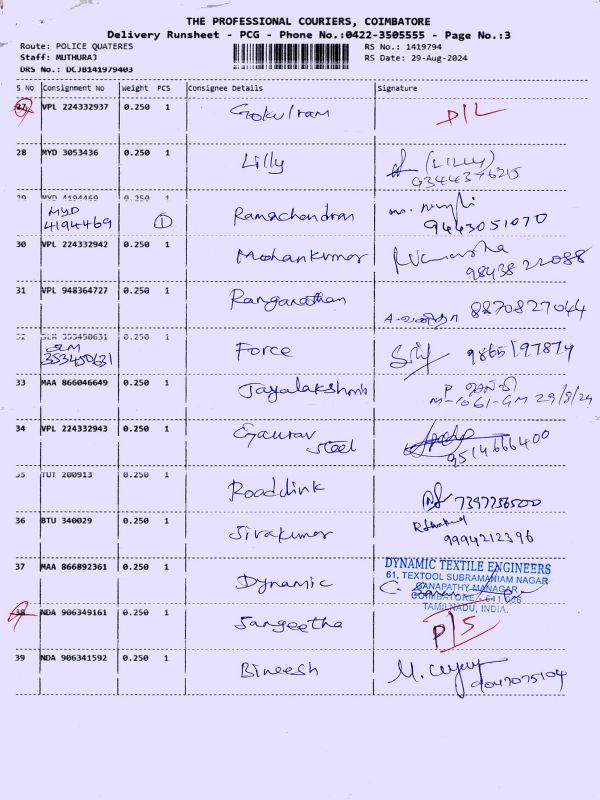 THE PROFESSIONAL COURIERS, COIMBATORE
Delivery Runsheet - PCG - Phone No.:0422-3505555 - Page No.:3
Route: POLICE QUATERES
RS No.: 1419794
Staff: MUTHURAJ
RS Date: 29-Aug-2024
DRS No.: DCJB141979403
S No Consignment No Weight PCS Consignee Details Signature
27 VPL 224332937 0.250 1 Gokulram D/L
28 MYD 3053436 0.250 1 Lilly (LILLY)
9344376215
29 MYD 4194469 0.250 1 Ramachandran
MYD
4194469 1 9443051070
30 VPL 224332942 0.250 1 Mohankumar
9843822088
31 VPL 948364727 0.250 1 Ranganathan 8870827044
32 SLM 353450631 0.250 1 Force
SLM
353450631
33 MAA 866046649 0.250 1 Jayalakshmi
M-1061-GM 29/8/24
34 VPL 224332943 0.250 1 Gaurav
Steel 9514666400
35 TUT 200913 0.250 1 Roadlink
36 BTU 340029 0.250 1 Sivakumar
9994212396
37 MAA 866892361 0.250 1 Dynamic
DYNAMIC TEXTILE ENGINEERS
61, TEXTOOL SUBRAMANIAM NAGAR
GANAPATHY MANAGAR
COIMBATORE - 641 006
TAMILNADU, INDIA.
38 NDA 906349161 0.250 1 Sangeetha P/S
39 NDA 906341592 0.250 1 Bineesh
9047075104